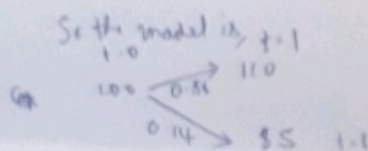 So the model is, t=1
t=0
110
100 0.86
0.14 85 t=1